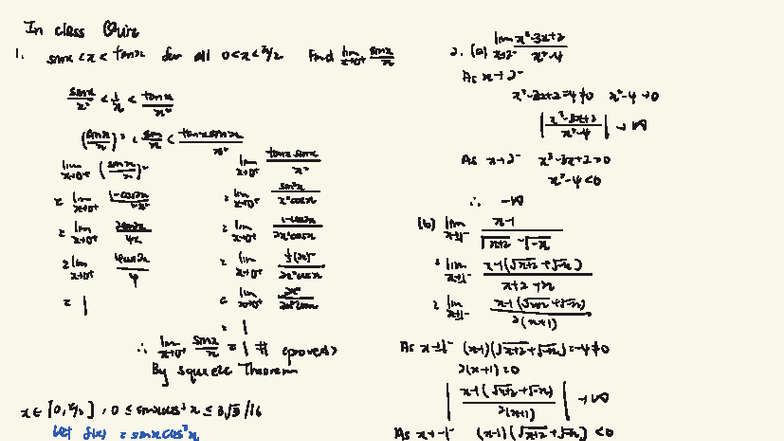 In class Quiz
1. sinx < x < tanx for all 0<x<π/2 Find lim x→0⁺ sinx/x
sinx/x² < 1/x < tanx/x²
(sinx/x)² < sinx/x < tanx sinx/x²
lim x→0⁺ (sinx/x)²
= lim x→0⁺ 1-cos2x/2x²
= lim x→0⁺ 2sin2x/4x
= lim x→0⁺ 4cos2x/4
= 1
lim x→0⁺ tanx sinx/x²
= lim x→0⁺ sin²x/x²cosx
= lim x→0⁺ 1-cos2x/2x²cosx
= lim x→0⁺ ½(2x)²/2x²cosx
= lim x→0⁺
= 1
∴ lim x→0⁺ sinx/x = 1 # (proved)
By squeeze Theorem
x ∈ [0, π/2], 0 ≤ sinxcos³x ≤ 3√3/16
Let f(x) = sinxcos³x
2. (a) lim x→2⁻ x³-3x+2/x²-4
As x→2⁻
x³-3x+2=4≠0 x²-4→0
|x³-3x+2/x²-4| → ∞
As x→2⁻ x³-3x+2>0
x²-4<0
∴ -∞
(b) lim x→-1⁻ x-1/√x+2 - √-x
= lim x→-1⁻ x-1(√x+2+√-x)/x+2+x
= lim x→-1⁻ x-1(√x+2+√-x)/2(x+1)
As x→-1⁻ (x-1)(√x+2+√-x)=-4≠0
2(x+1)=0
|x-1(√x+2+√-x)/2(x+1)| → ∞
As x→-1⁻ (x-1)(√x+2+√-x)<0